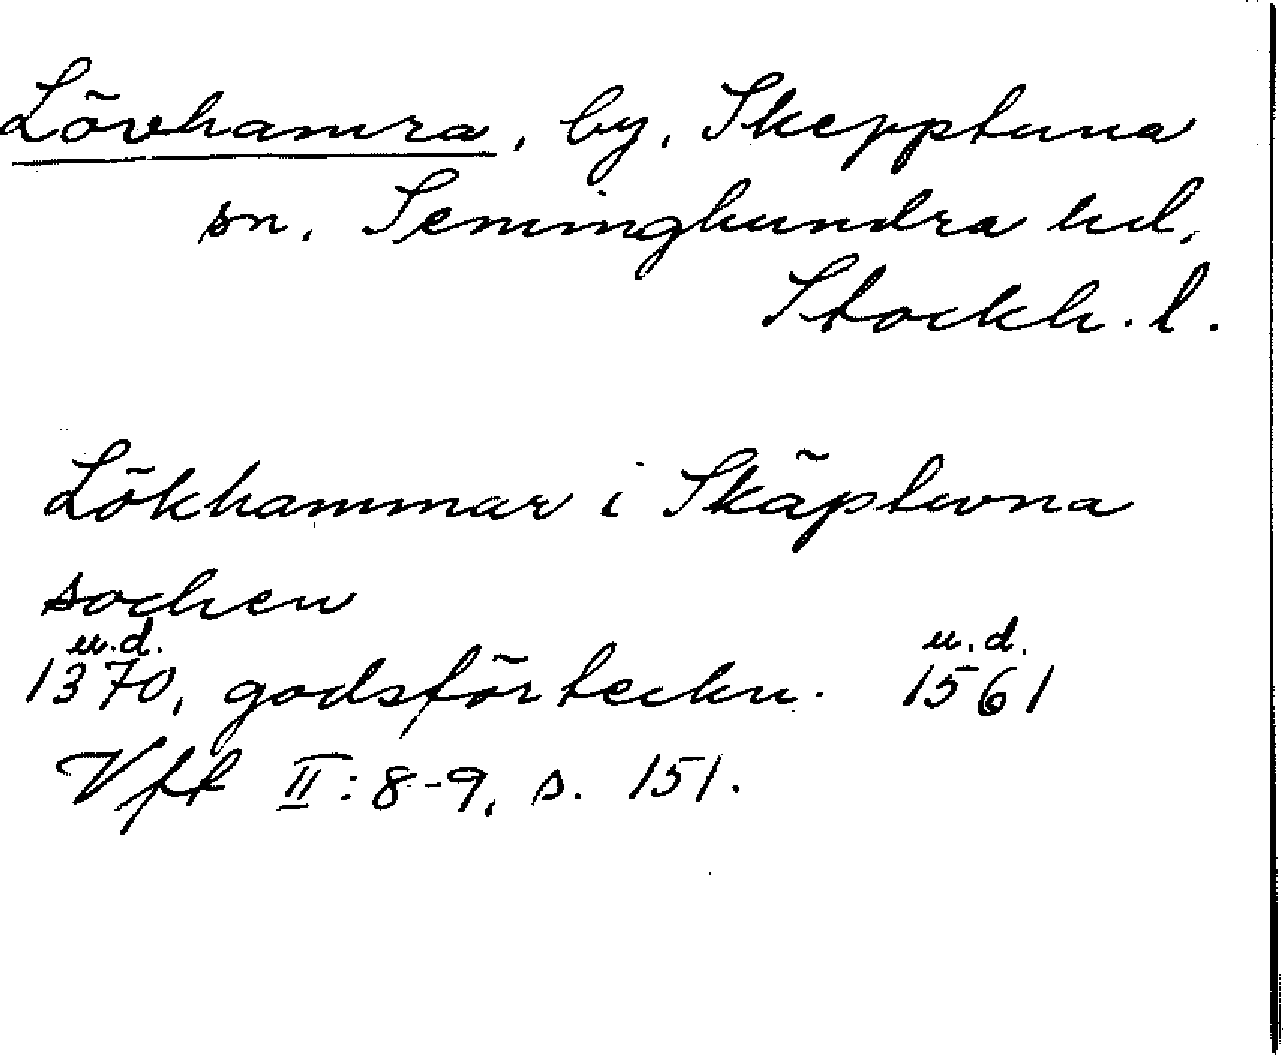 Lövhamra, by, Skepptuna
sn. Seminghundra hd.
Stockh. l.
Lökhammar i Skäptuna
sochen
u.d. u.d.
1370, godsförteckn. 1561
Vft II: 8-9, s. 151.